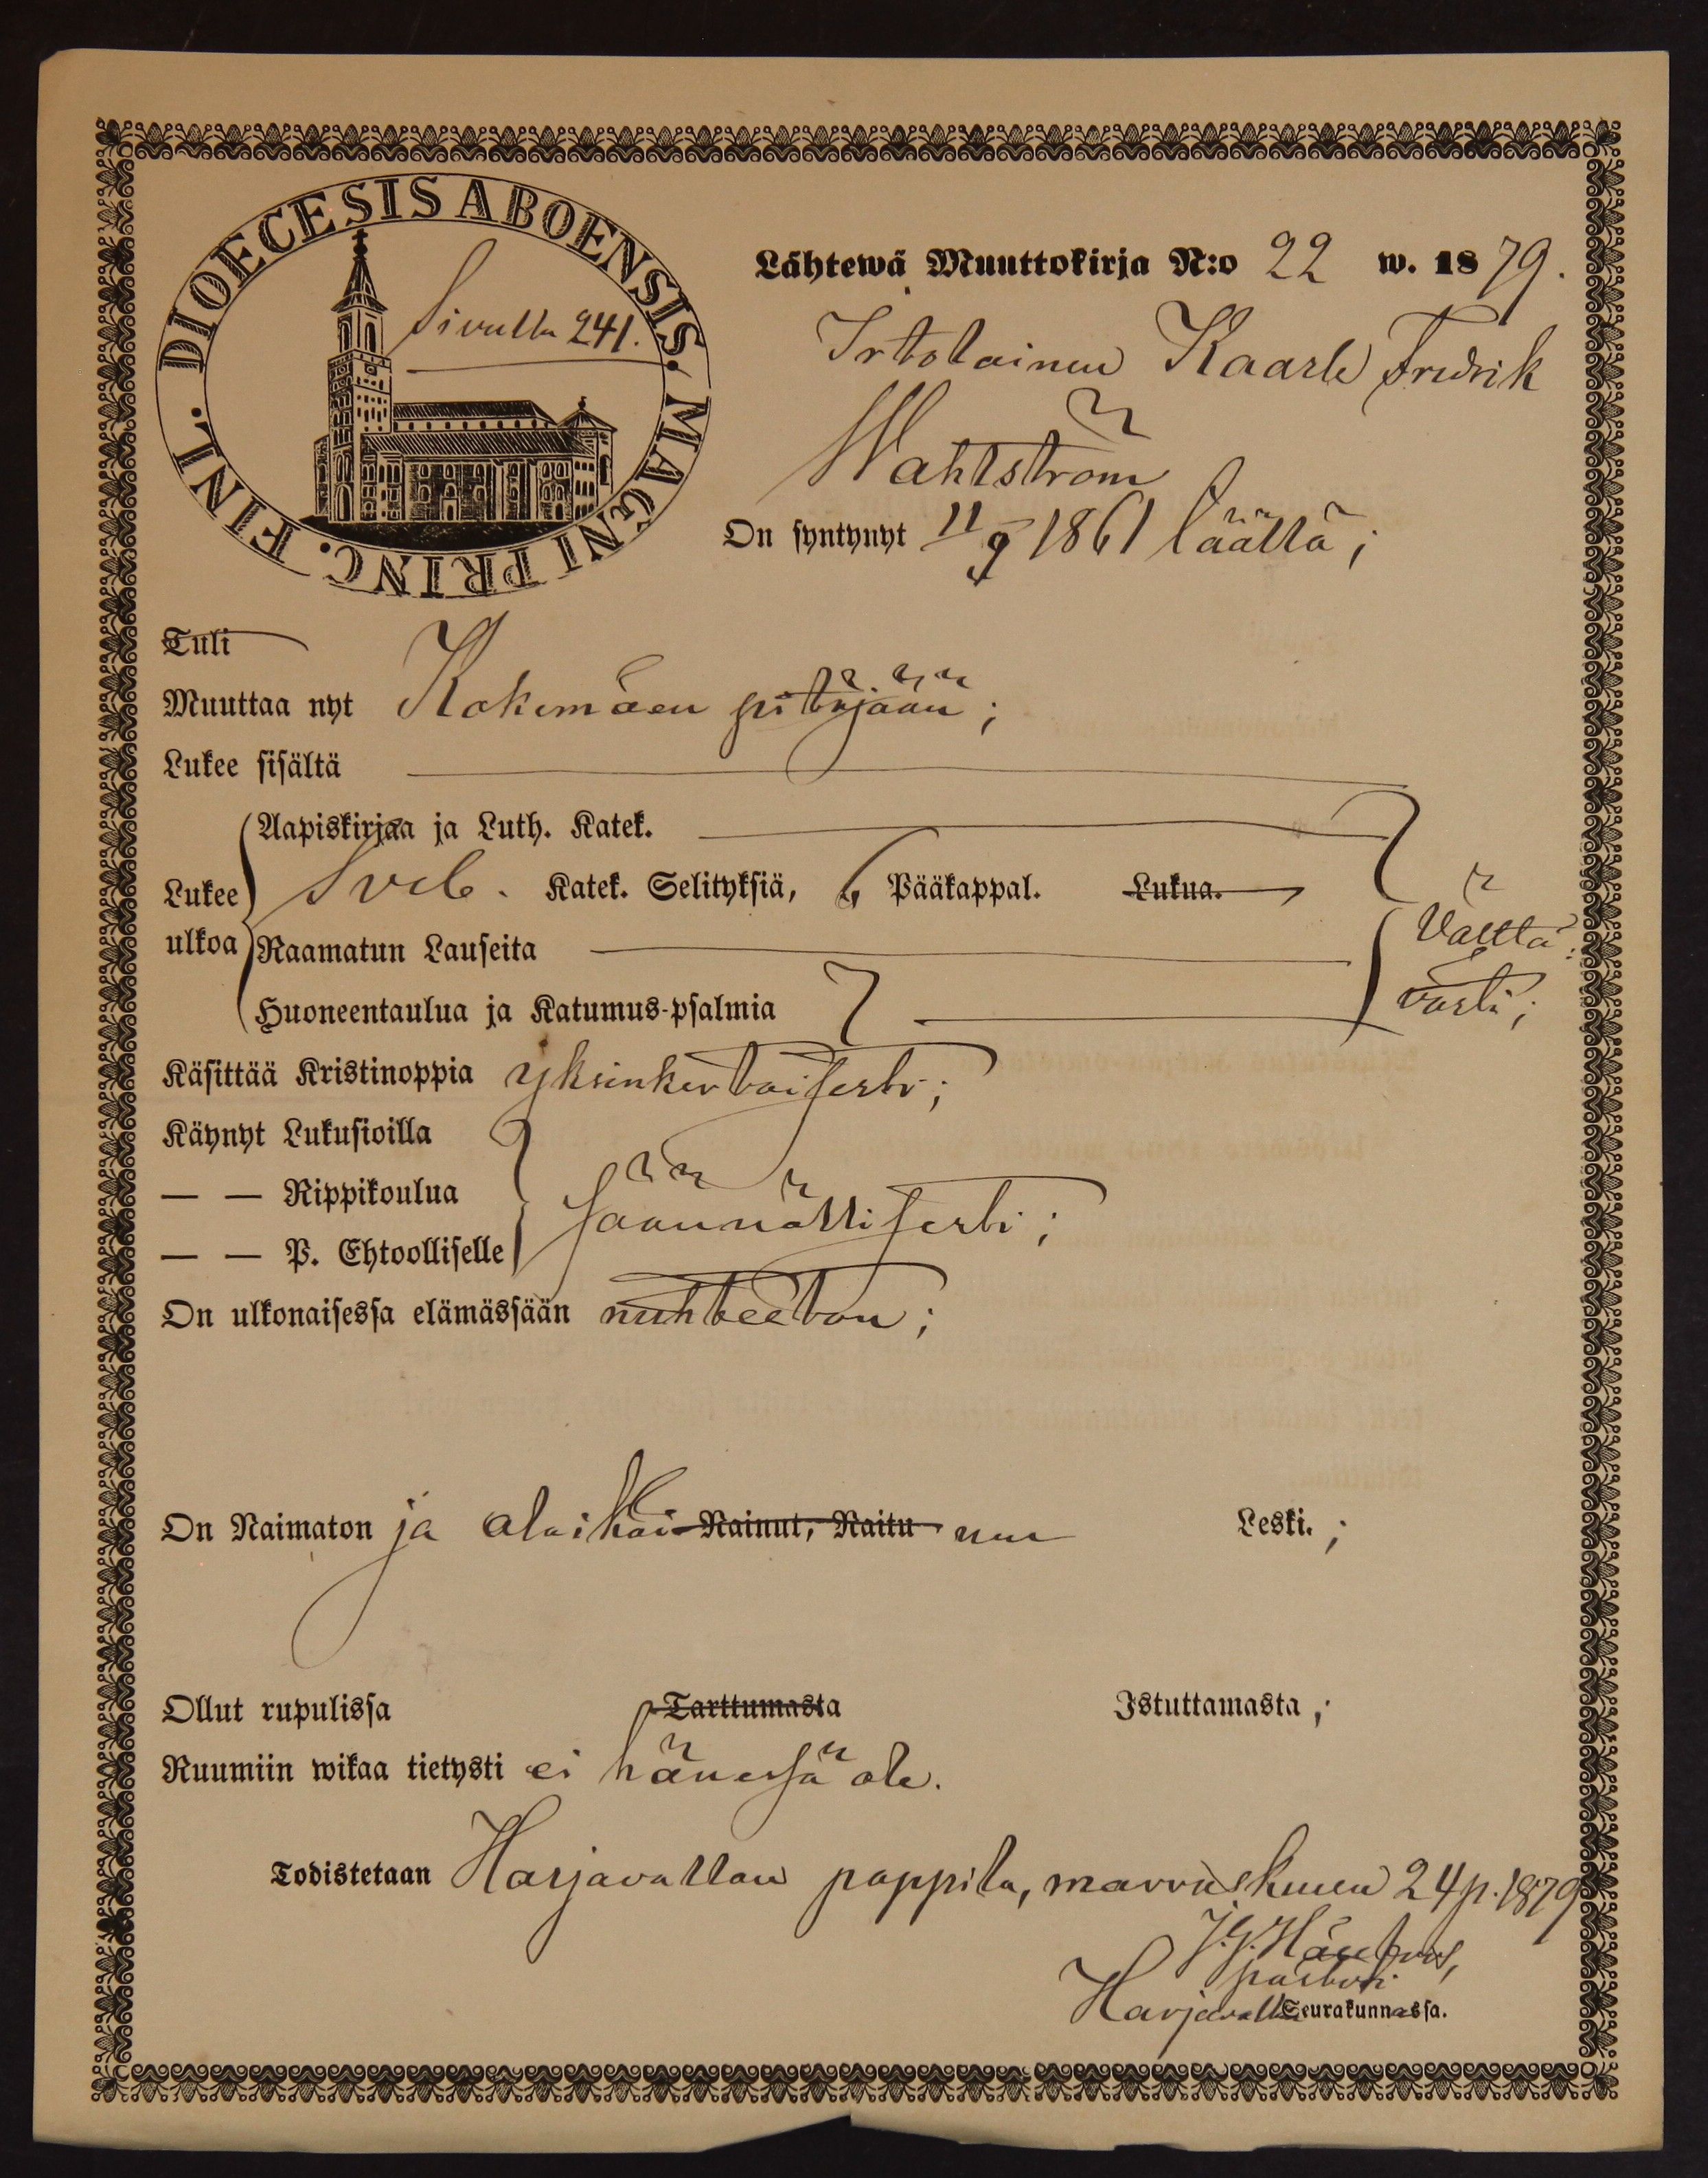 DIOECESIS ABOENSIS. MAGNI PRINC. FINL.
Sivulla 241.
Lähtewä Muuttokirja N:o 22 w. 1879.
Irtolainen Kaarle Fredrik
Wahlström
On syntynyt 11/9 1861 täällä;
Tuli
Muuttaa nyt Kokemäen pitäjään;
Lukee sisältä
Aapiskirjaa ja Luth. Katek.
Lukee ulkoa
Sveb. Katek. Selityksiä, 6 Pääkappal. Lukua.
Raamatun Lauseita
Huoneentaulua ja Katumus-psalmia
Välttä-
västi;
Käsittää Kristinoppia yksinkertaisesti;
Käynyt Lukusioilla
— — Rippikoulua
— — P. Ehtoolliselle
säännöllisesti;
On ulkonaisessa elämässään nuhteeton;
On Naimaton ja alaikäi- Nainut, Naitu nen Leski.;
Ollut rupulissa Tarttumasta Istuttamasta;
Ruumiin wikaa tietysti ei hänessä ole.
Todistetaan Harjavallan pappila, marraskuun 24 p. 1879
J. G.
pastori.
Harjavallan Seurakunnassa.